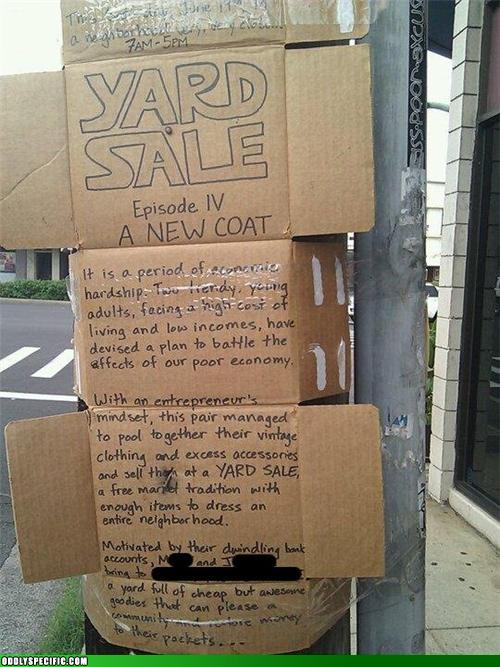 This Saturday June 17th in
a neighborhood very, very close...
7AM-5PM
YARD
SALE
Episode IV
A NEW COAT
It is a period of economic
hardship. Two trendy, young
adults, facing a high cost of
living and low incomes, have
devised a plan to battle the
affects of our poor economy.
With an entrepreneur's
mindset, this pair managed
to pool together their vintage
clothing and excess accessories
and sell them at a YARD SALE,
a free market tradition with
enough items to dress an
entire neighborhood.
Motivated by their dwindling bank
accounts, M and J
bring to
a yard full of cheap but awesome
goodies that can please a
community and restore money
to their pockets...
ODDLYSPECIFIC.COM